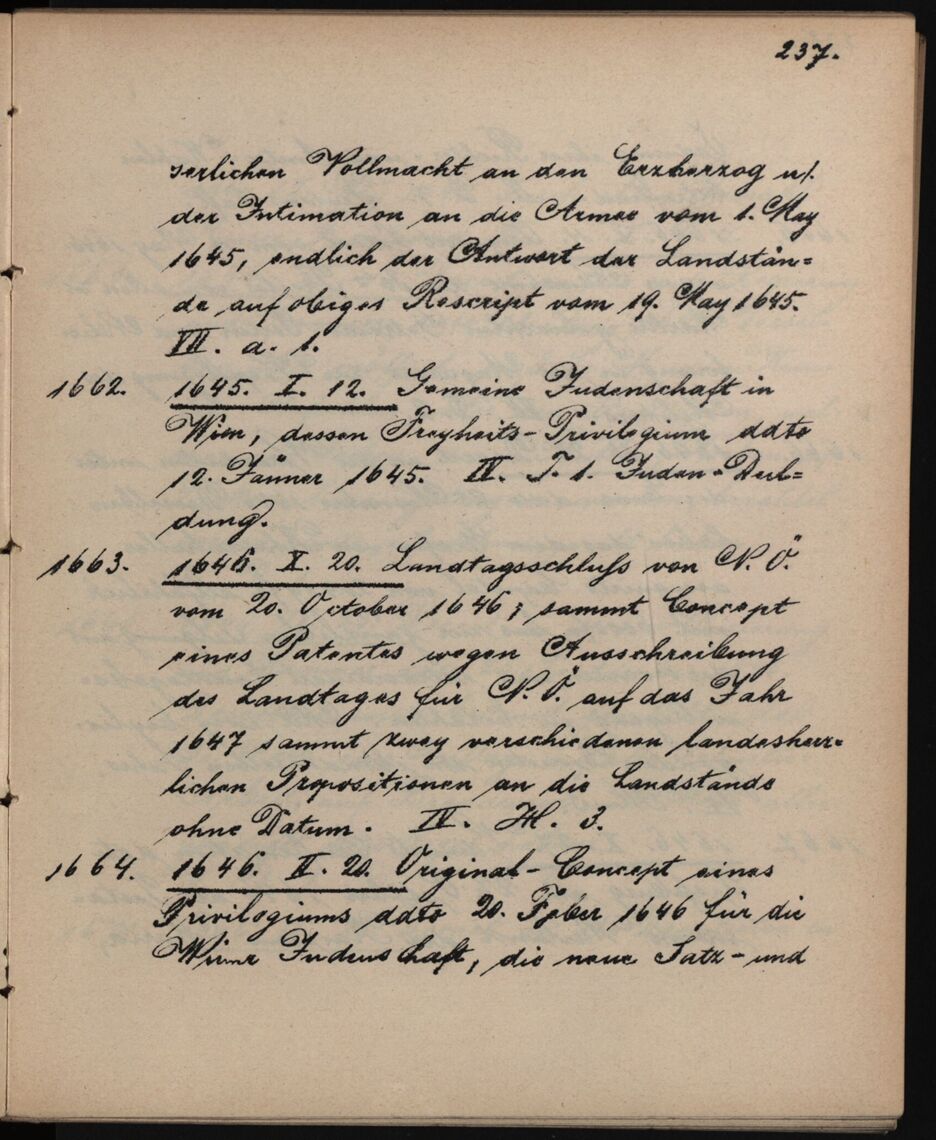 237.
serlichen Vollmacht an den Erzherzog u/.
der Intimation an die Armee vom 1. May
1645, endlich der Antwort der Landstän=
de auf obiges Rescript vom 19. May 1645.
VII. a. 1.
1662. 1645. I. 12. Gemeine Judenschaft in
Wien, dessen Freyheits-Privilegium ddto
12. Jänner 1645. IV. T. 1. Juden-Dul=
dung.
1663. 1646. X. 20. Landtagsschluß von N. Ö.
vom 20. October 1646; sammt Concept
eines Patentes wegen Ausschreibung
des Landtages für N. Ö. auf das Jahr
1647 sammt zwey verschiedenen landesherr=
lichen Propositionen an die Landstände
ohne Datum. IV. H. 3.
1664. 1646. II. 20. Original-Concept eines
Privilegiums ddto 20. Feber 1646 für die
Wiener Judenschaft, die neue Satz- und